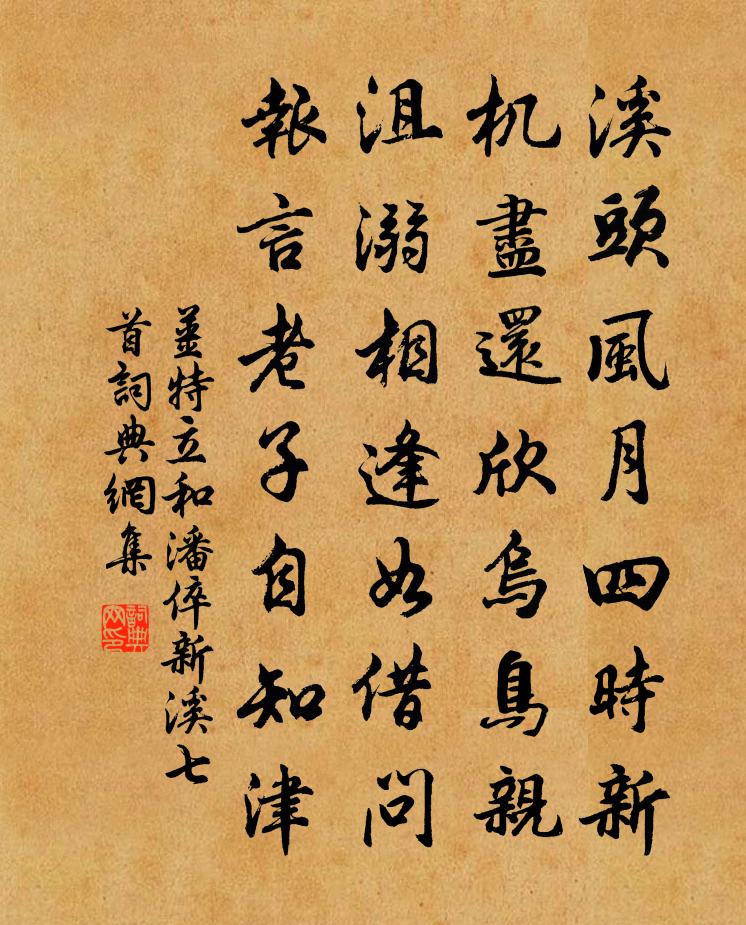 溪頭風月四時新
机盡還欣烏鳥親
沮溺相逢如借問
報言老子自知津
薑特立和潘倅新溪七
首詞典網集
詞典
网印